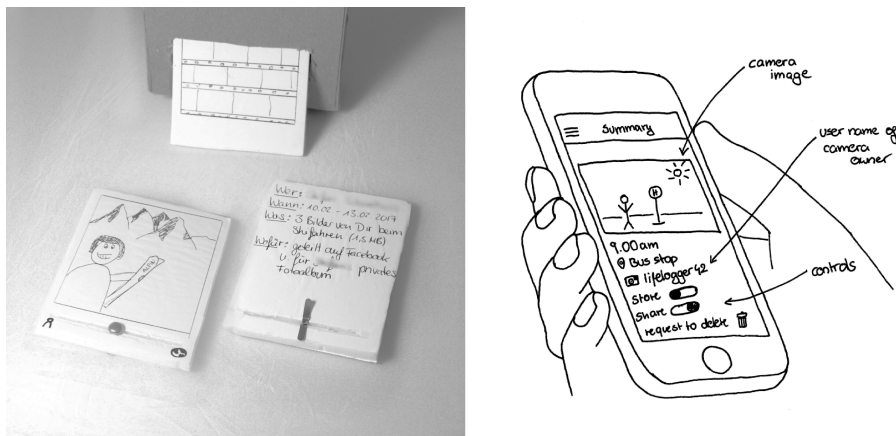 Wer:
Wann: 10.02 - 13.02 2017
Was: 3 Bilder von Dir beim
Skifahren (1.5 MB)
Wofür: geteilt auf Facebook
u. für privates
Fotoalbum
camera
image
Summary
user name of
camera
owner
H
9.00am
Bus stop
lifelogger42
store
share
request to delete
controls